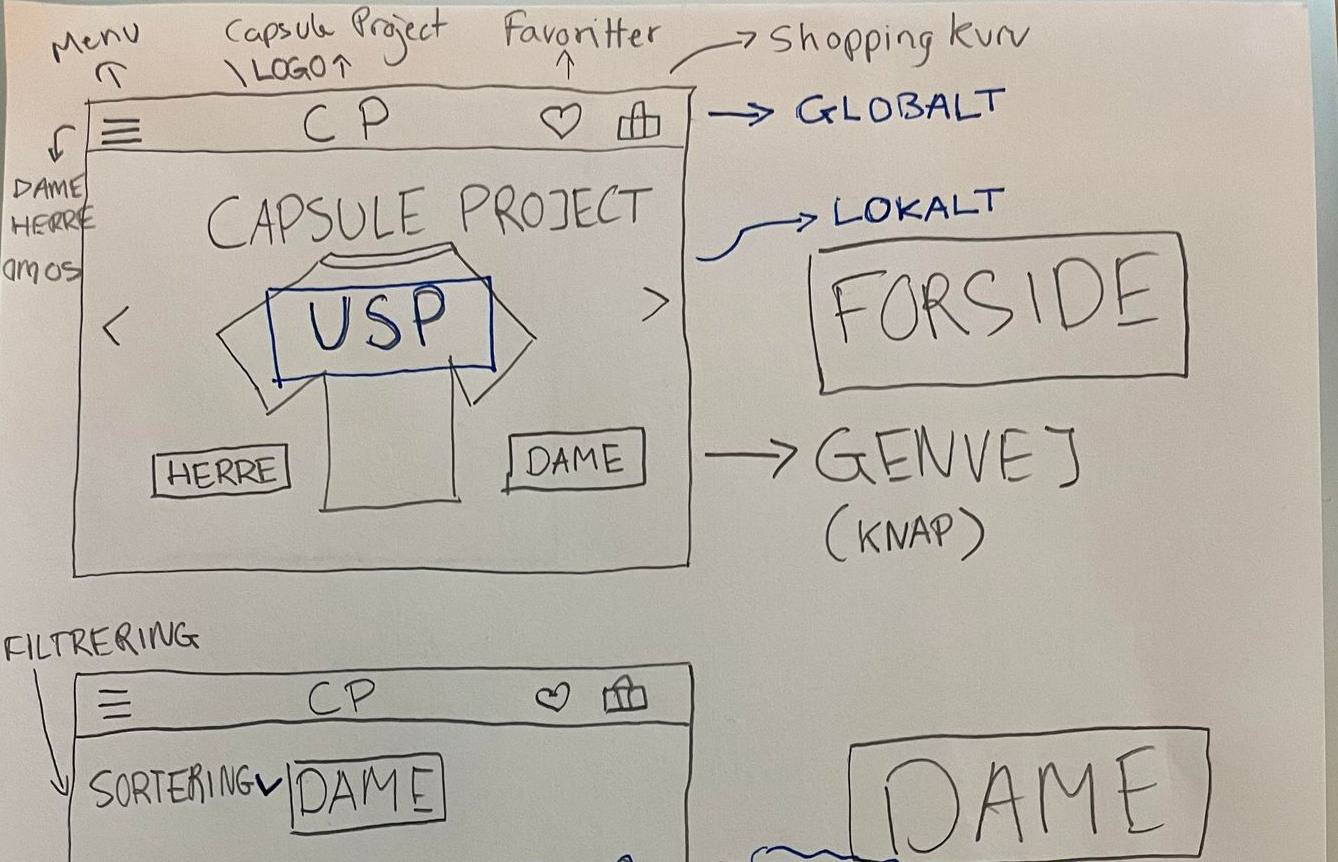 Menu
Capsule Project
LOGO
Favoritter
Shopping kurv
CP
GLOBALT
DAME
HERRE
om os
CAPSULE PROJECT
LOKALT
FORSIDE
USP
<
>
HERRE
DAME
GENVEJ
(KNAP)
FILTRERING
CP
SORTERING
DAME
DAME